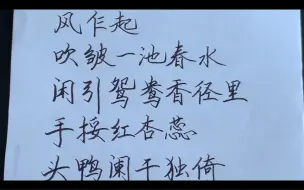 风乍起
吹皱一池春水
闲引鸳鸯香径里
手挼红杏蕊
头鸭阑干独倚